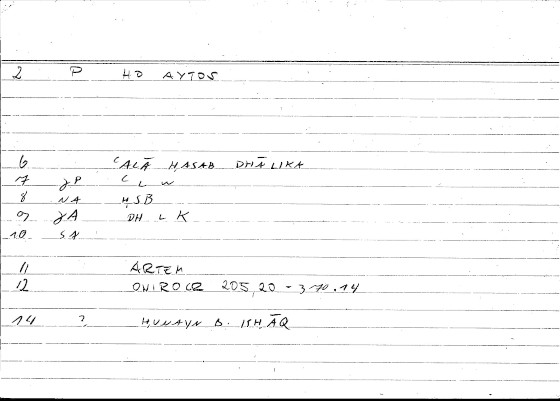 2 P HO AYTOS
6 ʿALĀ ḤASAB DHĀLIKA
7 gP ʿ L W
8 NA ḤSB
9 gA DH L K
10 SA
11 ARTEM
12 ONIROCR 205,20 - 370.14
14 ? ḤUNAYN B. ISḤĀQ